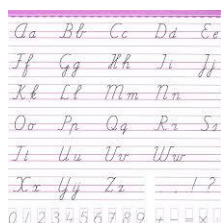 Aa Bb Cc Dd Ee
Ff Gg Hh Ii Jj
Kk Ll Mm Nn
Oo Pp Qq Rr Ss
Tt Uu Vv Ww
Xx Yy Zz . , ! ?
0 1 2 3 4 5 6 7 8 9 + - = × ÷